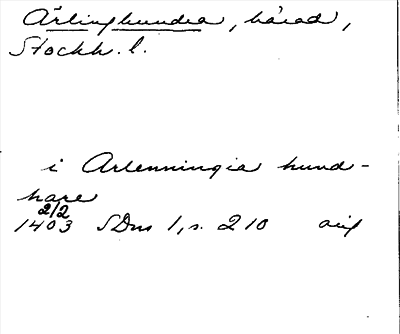 Ärlinghundra, härad,
Stockh. l.
i Arlenningia hund-
hare
2/2
1403 SDns 1, s. 210 avs